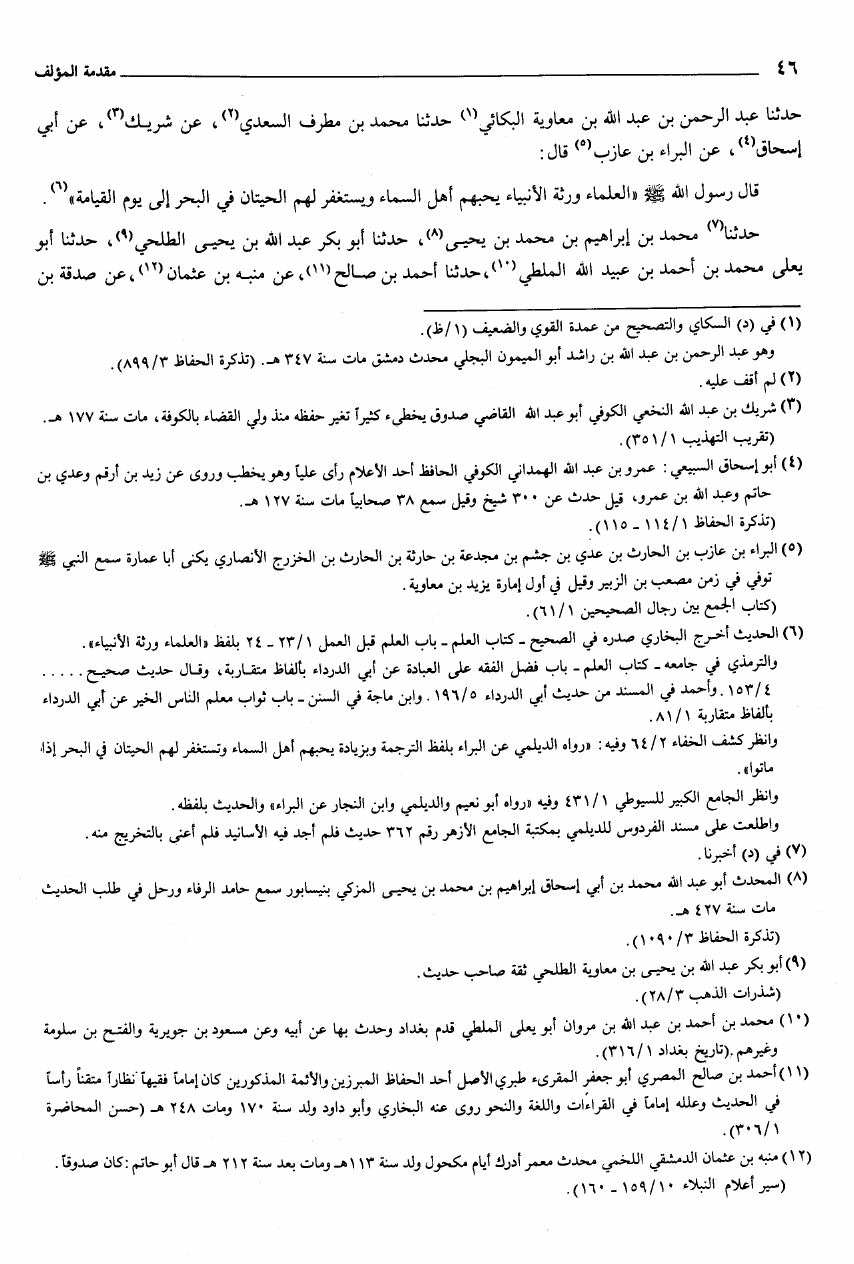 ٤٦ مقدمة المؤلف
حدثنا عبد الرحمن بن عبد الله بن معاوية البكائي(١) حدثنا محمد بن مطرف السعدي(٢)، عن شريـك(٣)، عن أبي
إسحاق(٤)، عن البراء بن عازب(٥) قال:
قال رسول الله ﷺ «العلماء ورثة الأنبياء يحبهم أهل السماء ويستغفر لهم الحيتان في البحر إلى يوم القيامة»(٦).
حدثنا(٧) محمد بن إبراهيم بن محمد بن يحيـى(٨)، حدثنا أبو بكر عبد الله بن يحيـى الطلحي(٩)، حدثنا أبو
يعلى محمد بن أحمد بن عبيد الله الملطي(١٠)، حدثنا أحمد بن صـالح(١١)، عن منبـه بن عثمان(١٢)، عن صدقة بن
(١) في (د) السكاي والتصحيح من عمدة القوي والضعيف (١/ظ).
وهو عبد الرحمن بن عبد الله بن راشد أبو الميمون البجلي محدث دمشق مات سنة ٣٤٧ هـ. (تذكرة الحفاظ ٨٩٩/٣).
(٢) لم أقف عليه.
(٣) شريك بن عبد الله النخعي الكوفي أبو عبد الله القاضي صدوق يخطىء كثيراً تغير حفظه منذ ولي القضاء بالكوفة، مات سنة ١٧٧ هـ.
(تقريب التهذيب ٣٥١/١).
(٤) أبو إسحاق السبيعي: عمرو بن عبد الله الهمداني الكوفي الحافظ أحد الأعلام رأى علياً وهو يخطب وروى عن زيد بن أرقم وعدي بن
حاتم وعبد الله بن عمرو، قيل حدث عن ٣٠٠ شيخ وقيل سمع ٣٨ صحابياً مات سنة ١٢٧ هـ.
(تذكرة الحفاظ ١١٤/١ ـ ١١٥).
(٥) البراء بن عازب بن الحارث بن عدي بن جشم بن مجدعة بن حارثة بن الحارث بن الخزرج الأنصاري يكنى أبا عمارة سمع النبي ﷺ
توفي في زمن مصعب بن الزبير وقيل في أول إمارة يزيد بن معاوية.
(كتاب الجمع بين رجال الصحيحين ٦١/١).
(٦) الحديث أخـرج البخاري صدره في الصحيح ـ كتاب العلم ـ باب العلم قبل العمل ٢٣/١ ـ ٢٤ بلفظ «العلماء ورثة الأنبياء».
والترمذي في جامعه ـ كتاب العلم ـ باب فضل الفقه على العبادة عن أبي الدرداء بألفاظ متقـاربة، وقـال حديث صحيـح .....
١٥٣/٤. وأحمد في المسند من حديث أبي الدرداء ١٩٦/٥. وابن ماجة في السنن ـ باب ثواب معلم الناس الخير عن أبي الدرداء
بألفاظ متقاربة ٨١/١.
وانظر كشف الخفاء ٦٤/٢ وفيه: «رواه الديلمي عن البراء بلفظ الترجمة وبزيادة يحبهم أهل السماء وتستغفر لهم الحيتان في البحر إذا
ماتوا».
وانظر الجامع الكبير للسيوطي ٤٣١/١ وفيه «رواه أبو نعيم والديلمي وابن النجار عن البراء» والحديث بلفظه.
واطلعت على مسند الفردوس للديلمي بمكتبة الجامع الأزهر رقم ٣٦٢ حديث فلم أجد فيه الأسانيد فلم أعنى بالتخريج منه.
(٧) في (د) أخبرنا.
(٨) المحدث أبو عبد الله محمد بن أبي إسحاق إبراهيم بن محمد بن يحيـى المزكي بنيسابور سمع حامد الرفاء ورحل في طلب الحديث
مات سنة ٤٢٧ هـ.
(تذكرة الحفاظ ١٠٩٠/٣).
(٩) أبو بكر عبد الله بن يحيـى بن معاوية الطلحي ثقة صاحب حديث.
(شذرات الذهب ٢٨/٣).
(١٠) محمد بن أحمد بن عبد الله بن مروان أبو يعلى الملطي قدم بغداد وحدث بها عن أبيه وعن مسعود بن جويرية والفتـح بن سلومة
وغيرهم. (تاريخ بغداد ٣١٦/١).
(١١) أحمد بن صالح المصري أبو جعفر المقرىء طبري الأصل أحد الحفاظ المبرزين والأئمة المذكورين كان إماماً فقيهاً نظاراً متقناً رأساً
في الحديث وعلله إماماً في القراءات واللغة والنحو روى عنه البخاري وأبو داود ولد سنة ١٧٠ ومات ٢٤٨ هـ (حسن المحاضرة
٣٠٦/١).
(١٢) منبه بن عثمان الدمشقي اللخمي محدث معمر أدرك أيام مكحول ولد سنة ١١٣هـ ومات بعد سنة ٢١٢ هـ قال أبو حاتم: كان صدوقاً.
(سير أعلام النبلاء ١٥٩/١٠ ـ ١٦٠).